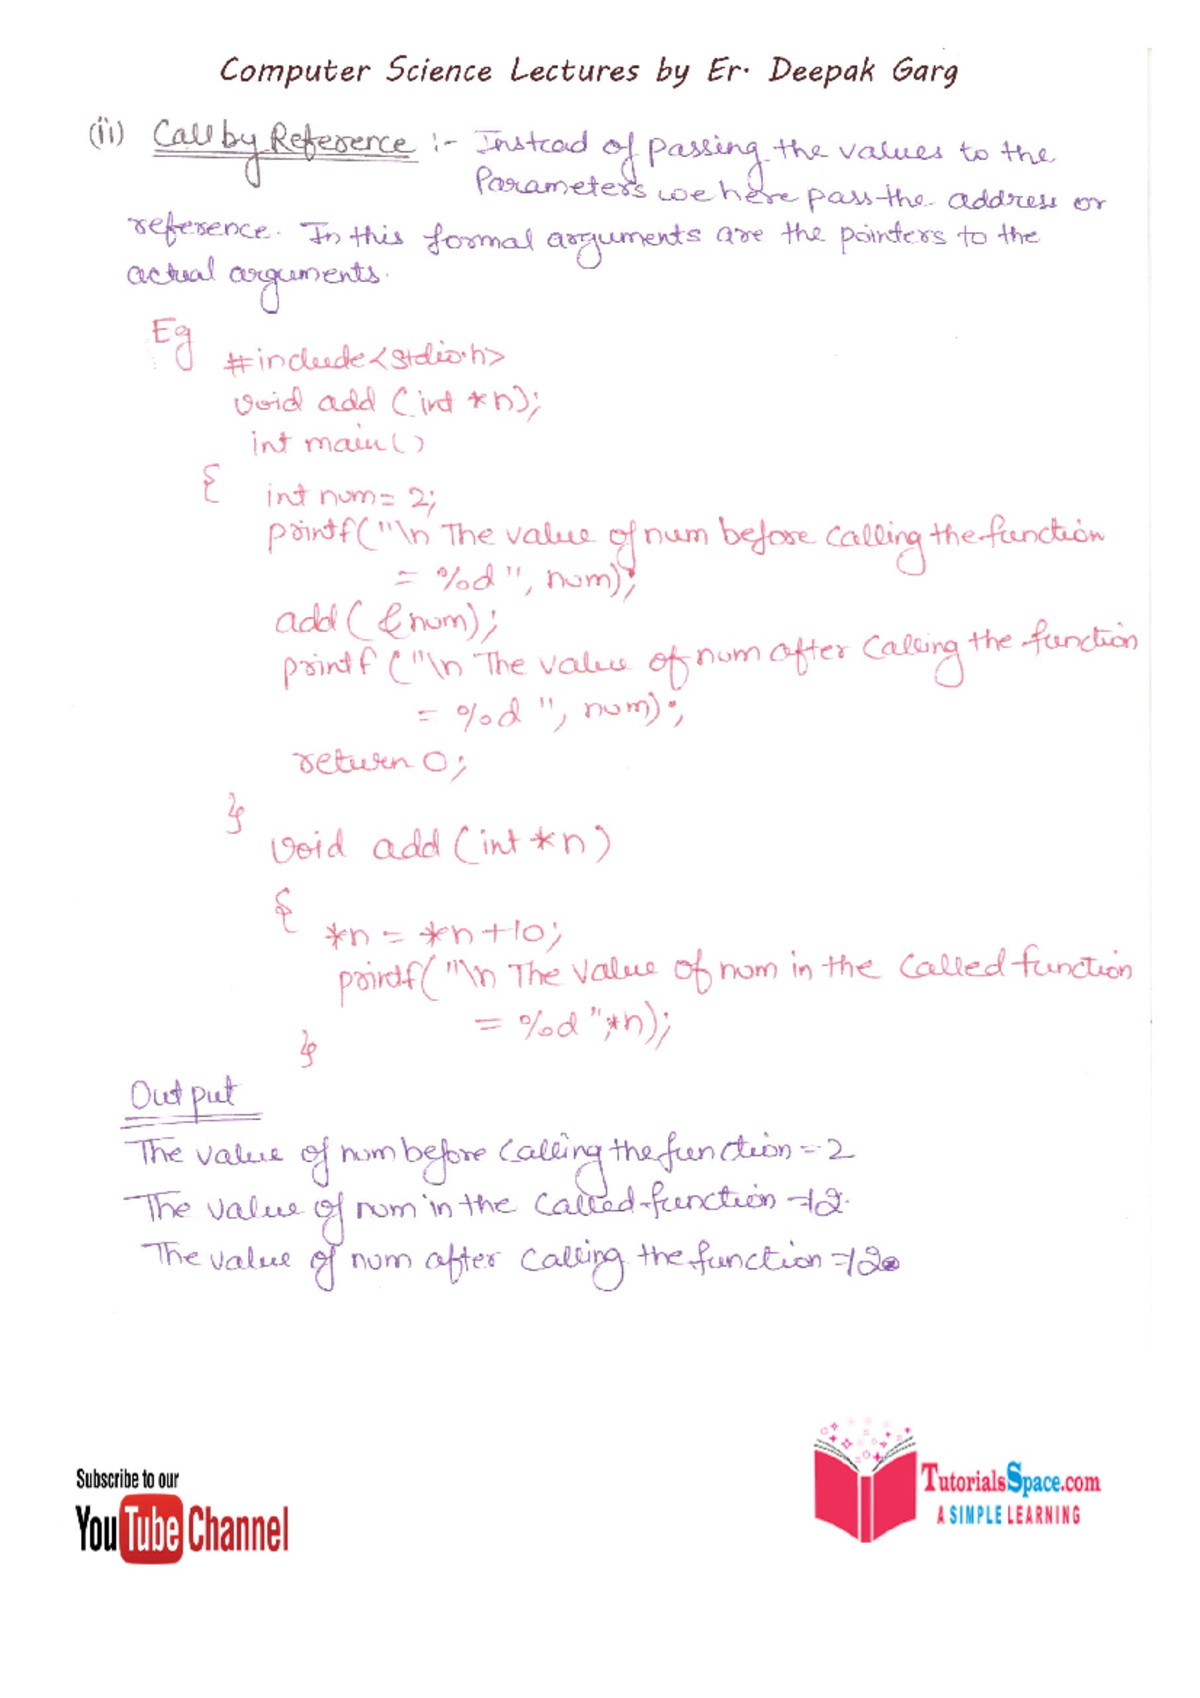 Computer Science Lectures by Er. Deepak Garg
(ii) Call by Reference :- Instead of passing the values to the
Parameters we here pass the address or
reference. In this formal arguments are the pointers to the
actual arguments.
Eg
#include<stdio.h>
void add (int *n);
int main()
{
int num= 2;
printf("\n The value of num before calling the function
= %d", num);
add( &num);
printf ("\n The value of num after calling the function
= %d ", num);
return 0;
}
void add (int *n)
{
*n = *n+10;
printf("\n The value of num in the called function
= %d ",*n);
}
Output
The value of num before calling the function = 2
The value of num in the called function =12.
The value of num after calling the function =12.
Subscribe to our
YouTube Channel
TutorialsSpace.com
A SIMPLE LEARNING